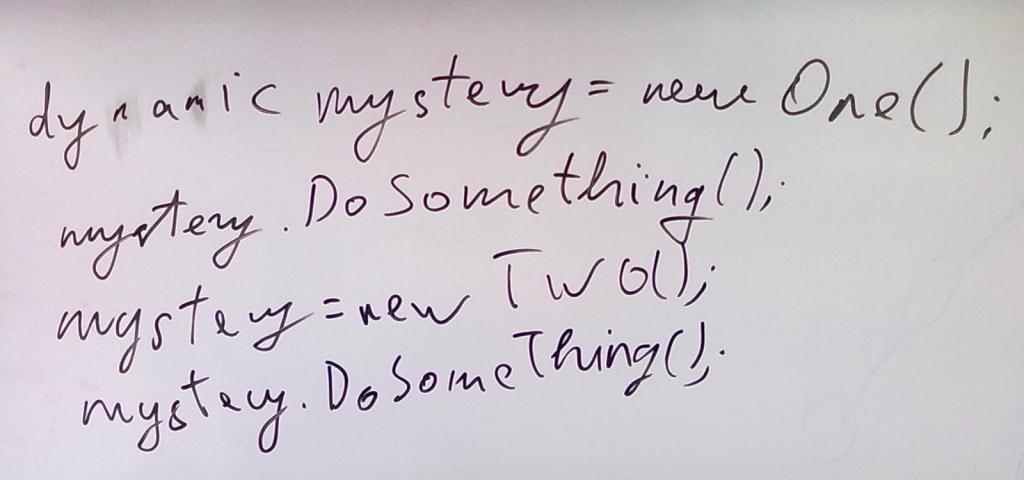 dynamic mystery = new One();
mystery.DoSomething();
mystery = new Two();
mystery.DoSomeThing();